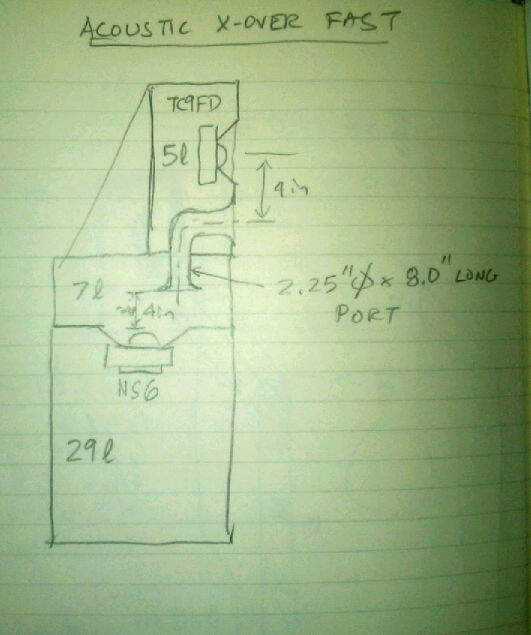 ACOUSTIC X-OVER FAST
TC9FD
5l
4in
7l
4in
2.25"⌀ x 8.0" LONG
PORT
NS6
29l